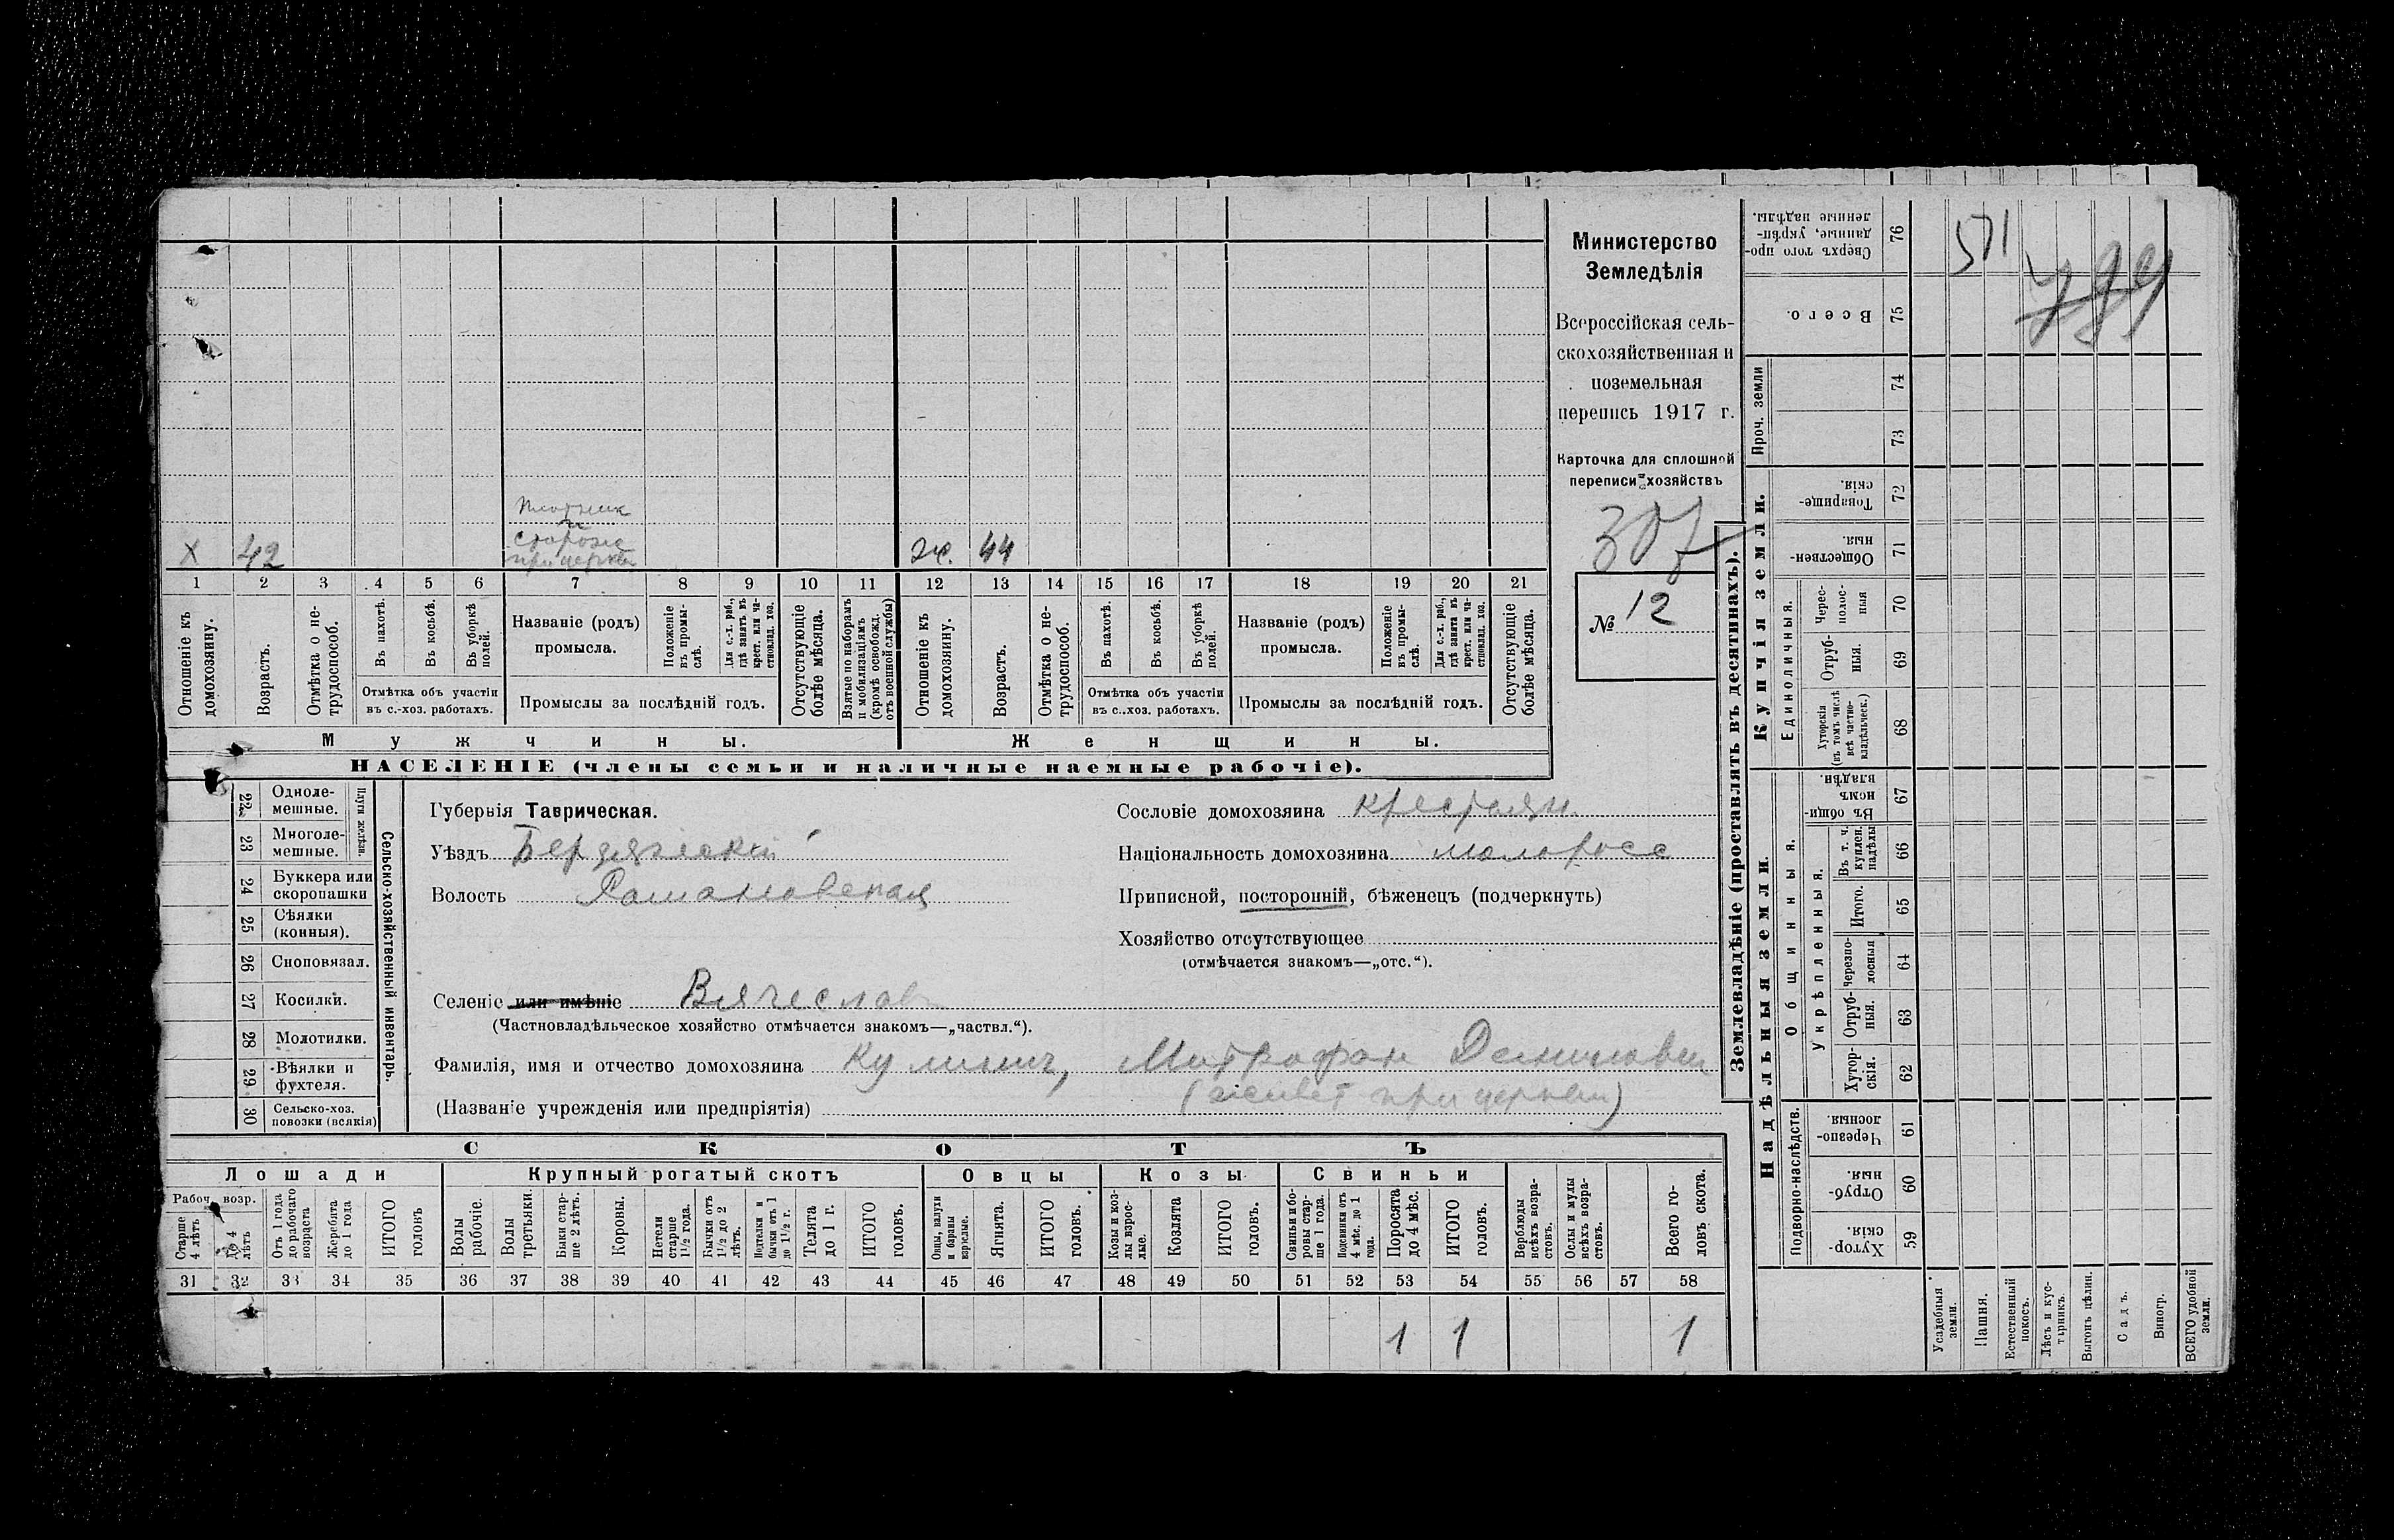 Министерство
Земледѣлія
Всероссійская сель-
скохозяйственная и
поземельная
перепись 1917 г.
Карточка для сплошной
переписи хозяйствъ
307
№ 12
Плотник
и
сторож
при церкви
Х 42
ж. 44
1 2 3 4 5 6 7 8 9 10 11 12 13 14 15 16 17 18 19 20 21
Отношеніе къ домохозяину.
Возрастъ.
Отмѣтка о не-трудоспособ.
Въ пахотѣ.
Въ косьбѣ.
Въ уборкѣ полей.
Отмѣтка объ участіи
въ с.-хоз. работахъ.
Названіе (родъ)
промысла.
Положеніе въ промы-слѣ.
Для с.-х. раб., гдѣ занятъ въ крест. или ча-стновлад. хоз.
Промыслы за послѣдній годъ.
Отсутствующіе болѣе мѣсяца.
Взятые по наборамъ и мобилизаціямъ (кромѣ освобожд. отъ военной службы)
Отношеніе къ домохозяину.
Возрастъ.
Отмѣтка о не-трудоспособ.
Въ пахотѣ.
Въ косьбѣ.
Въ уборкѣ полей.
Отмѣтка объ участіи
въ с..хоз. работахъ.
Названіе (родъ)
промысла.
Положеніе въ промы-слѣ.
Для с.-х. раб., гдѣ занята въ крест. или ча-стновлад. хоз.
Промыслы за послѣдній годъ.
Отсутствующіе болѣе мѣсяца.
Мужчины.
Женщины.
НАСЕЛЕНІЕ (члены семьи и наличные наемные рабочіе).
22 Одноле-мешные.
23 Многоле-мешные.
Плуги желѣзн.
24 Буккера или скоропашки
25 Сѣялки (конныя).
26 Сноповязал.
27 Косилки.
28 Молотилки.
29 Вѣялки и фухтеля.
30 Сельско-хоз. повозки (всякія)
Сельско-хозяйственный инвентарь.
Губернія Таврическая.
Уѣздъ Бердянский
Волость Романовская
Селеніе или имѣніе Вячеслав
(Частновладѣльческое хозяйство отмѣчается знакомъ—„частвл.“).
Фамилія, имя и отчество домохозяина Кулинич, Митрофан Данилович
(Названіе учрежденія или предпріятія) (живет при церкви)
Сословіе домохозяина крестьян.
Національность домохозяина малоросс
Приписной, посторонній, бѣженецъ (подчеркнуть)
Хозяйство отсутствующее
(отмѣчается знакомъ—„отс.“).
СКОТЪ
Лошади
Крупный рогатый скотъ
Овцы
Козы
Свиньи
Рабоч. возр.
Старше 4 лѣтъ
до 4 лѣтъ
Отъ 1 года до рабочаго возраста
Жеребята до 1 года
ИТОГО головъ
Волы рабочіе.
Волы третьяки.
Быки стар-ше 2 лѣтъ.
Коровы.
Нетели старше 1½ года.
Бычки отъ 1½ до 2 лѣтъ.
Подтелки и бычки отъ 1 до 1½ г.
Телята до 1 г.
ИТОГО головъ.
Овцы, валухи и бараны взрослые.
Ягнята.
ИТОГО головъ.
Козы и коз-лы взрос-лые.
Козлята
ИТОГО головъ.
Свиньи и бо-ровы стар-ше 1 года.
Подсвинки отъ 4 мѣс. до 1 года.
Поросята до 4 мѣс.
ИТОГО головъ.
Верблюды всѣхъ возра-стовъ.
Ослы и мулы всѣхъ возра-стовъ.
Всего го-ловъ скота.
31 32 33 34 35 36 37 38 39 40 41 42 43 44 45 46 47 48 49 50 51 52 53 54 55 56 57 58
1 1 1
Землевладѣніе (проставлять въ десятинахъ).
Надѣльныя земли.
Купчія земли.
Проч. земли
Подворно-наслѣдств.
Общинныя.
Укрѣпленныя.
Единоличныя.
Хутор-скія. 59
Отруб-ныя. 60
Черезпо-лосныя 61
Хутор-скія. 62
Отруб-ныя. 63
Черезпо-лосныя 64
Итого. 65
Въ т. ч. куплен. надѣлы 66
Въ общин-номъ владѣн. 67
Хуторскія (въ томъ числѣ всѣ частно-владѣльческ.) 68
Отруб-ныя. 69
Черес-полос-ныя 70
Обществен-ныя. 71
Товарище-скія. 72
73
74
Всего. 75
Сверхъ того про-данные, укрѣп-ленные надѣлы. 76
571
Усадебныя земли.
Пашня.
Естественный покосъ.
Лѣсъ и кус-тарникъ.
Выгонъ цѣлин.
Садъ.
Виногр.
ВСЕГО удобной земли.